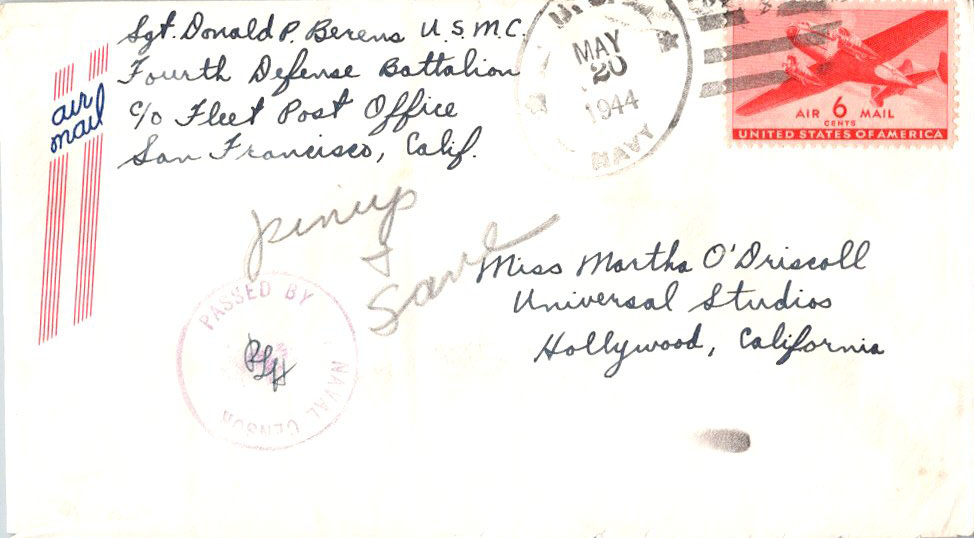 Sgt. Donald P. Berens U.S.M.C.
Fourth Defense Battalion
c/o Fleet Post Office
San Francisco, Calif.
air
mail
MAY
20
1944
NAVY
AIR 6 MAIL
CENTS
UNITED STATES OF AMERICA
pinup
+
Save
Miss Martha O'Driscoll
Universal Studios
Hollywood, California
PASSED BY
NAVAL CENSOR